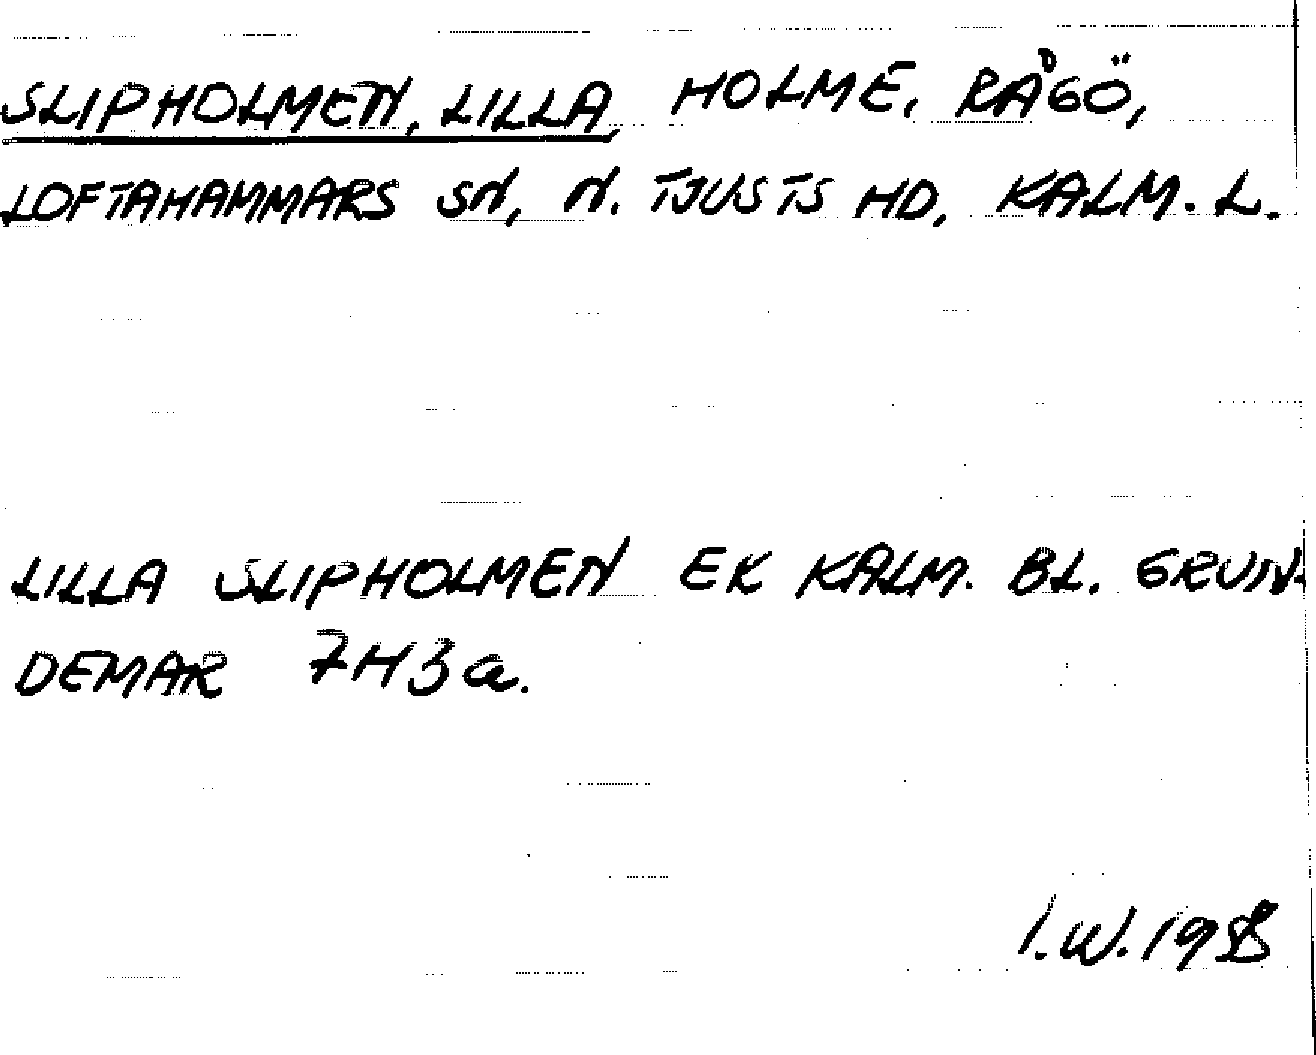 SLIPHOLMEN, LILLA, HOLME, RÅGÖ,
LOFTAHAMMARS SN, N. TJUSTS HD, KALM. L.
LILLA SLIPHOLMEN EK KALM. BL. GRUN-
DEMAR 7H3a.
I.W. 198